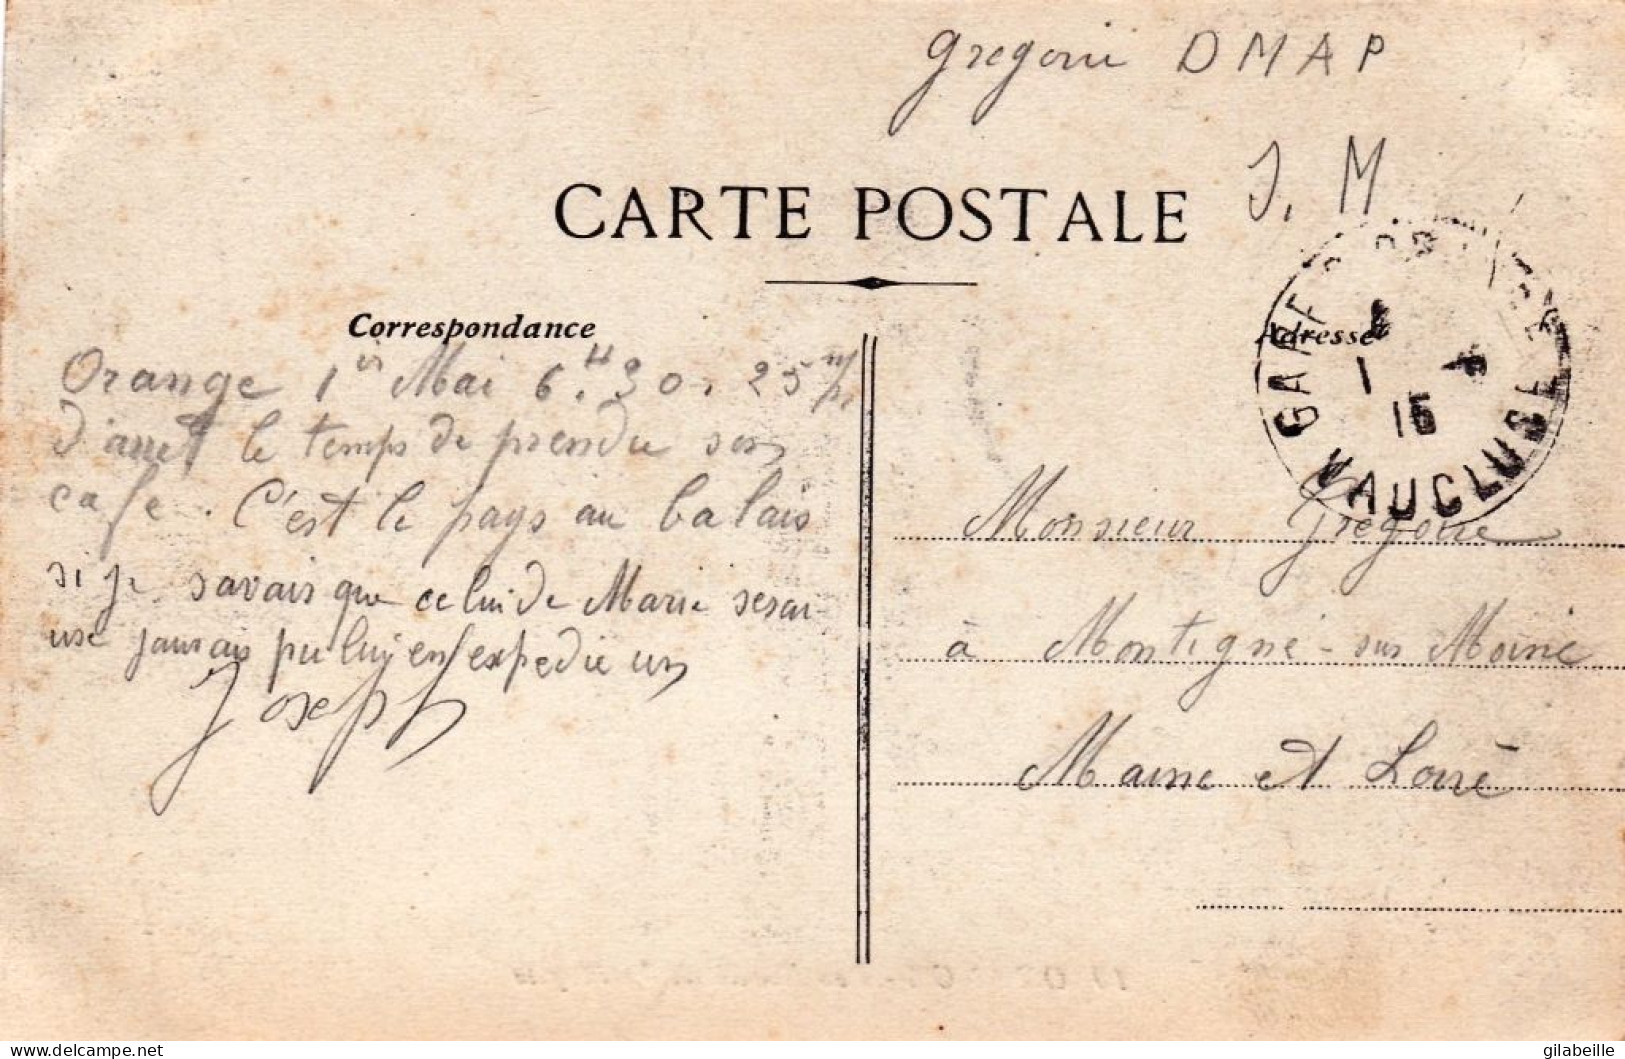 Gregoire DMAP
J. M
CARTE POSTALE
Correspondance
Adresse
GARE D'OR
1 5
15
VAUCLUSE
Orange 1er Mai 6.H30. 25 m/
d'arret le temps de prendre son
cafe. C'est le pays au balais
si je savais que celui de Marie serai
use jamais pu luy en expedie un
Joseph
Monsieur Gregoire
à Montigné-sur Moine
Maine et Loire
gilabeille